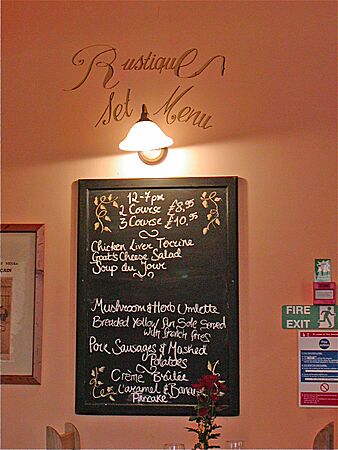 Rustique
Set Menu
12-7pm
2 Course £8.95
3 Course £10.95
Chicken Liver Terrine
Goat's Cheese Salad
Soup du Jour
Mushroom & Herb Omlette
Breaded Yellow Fin Sole Served
with french fries
Pork Sausages & Mashed
Potatoes
Crème Brûlée
Caramel & Banana
Pancake
FIRE
EXIT